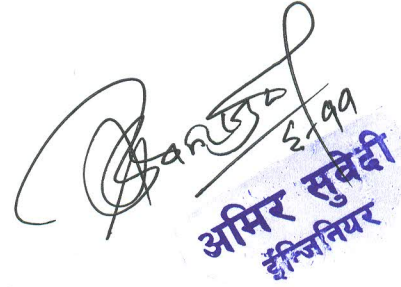 ६-११
अमिर सुवेदी
ईन्जिनियर